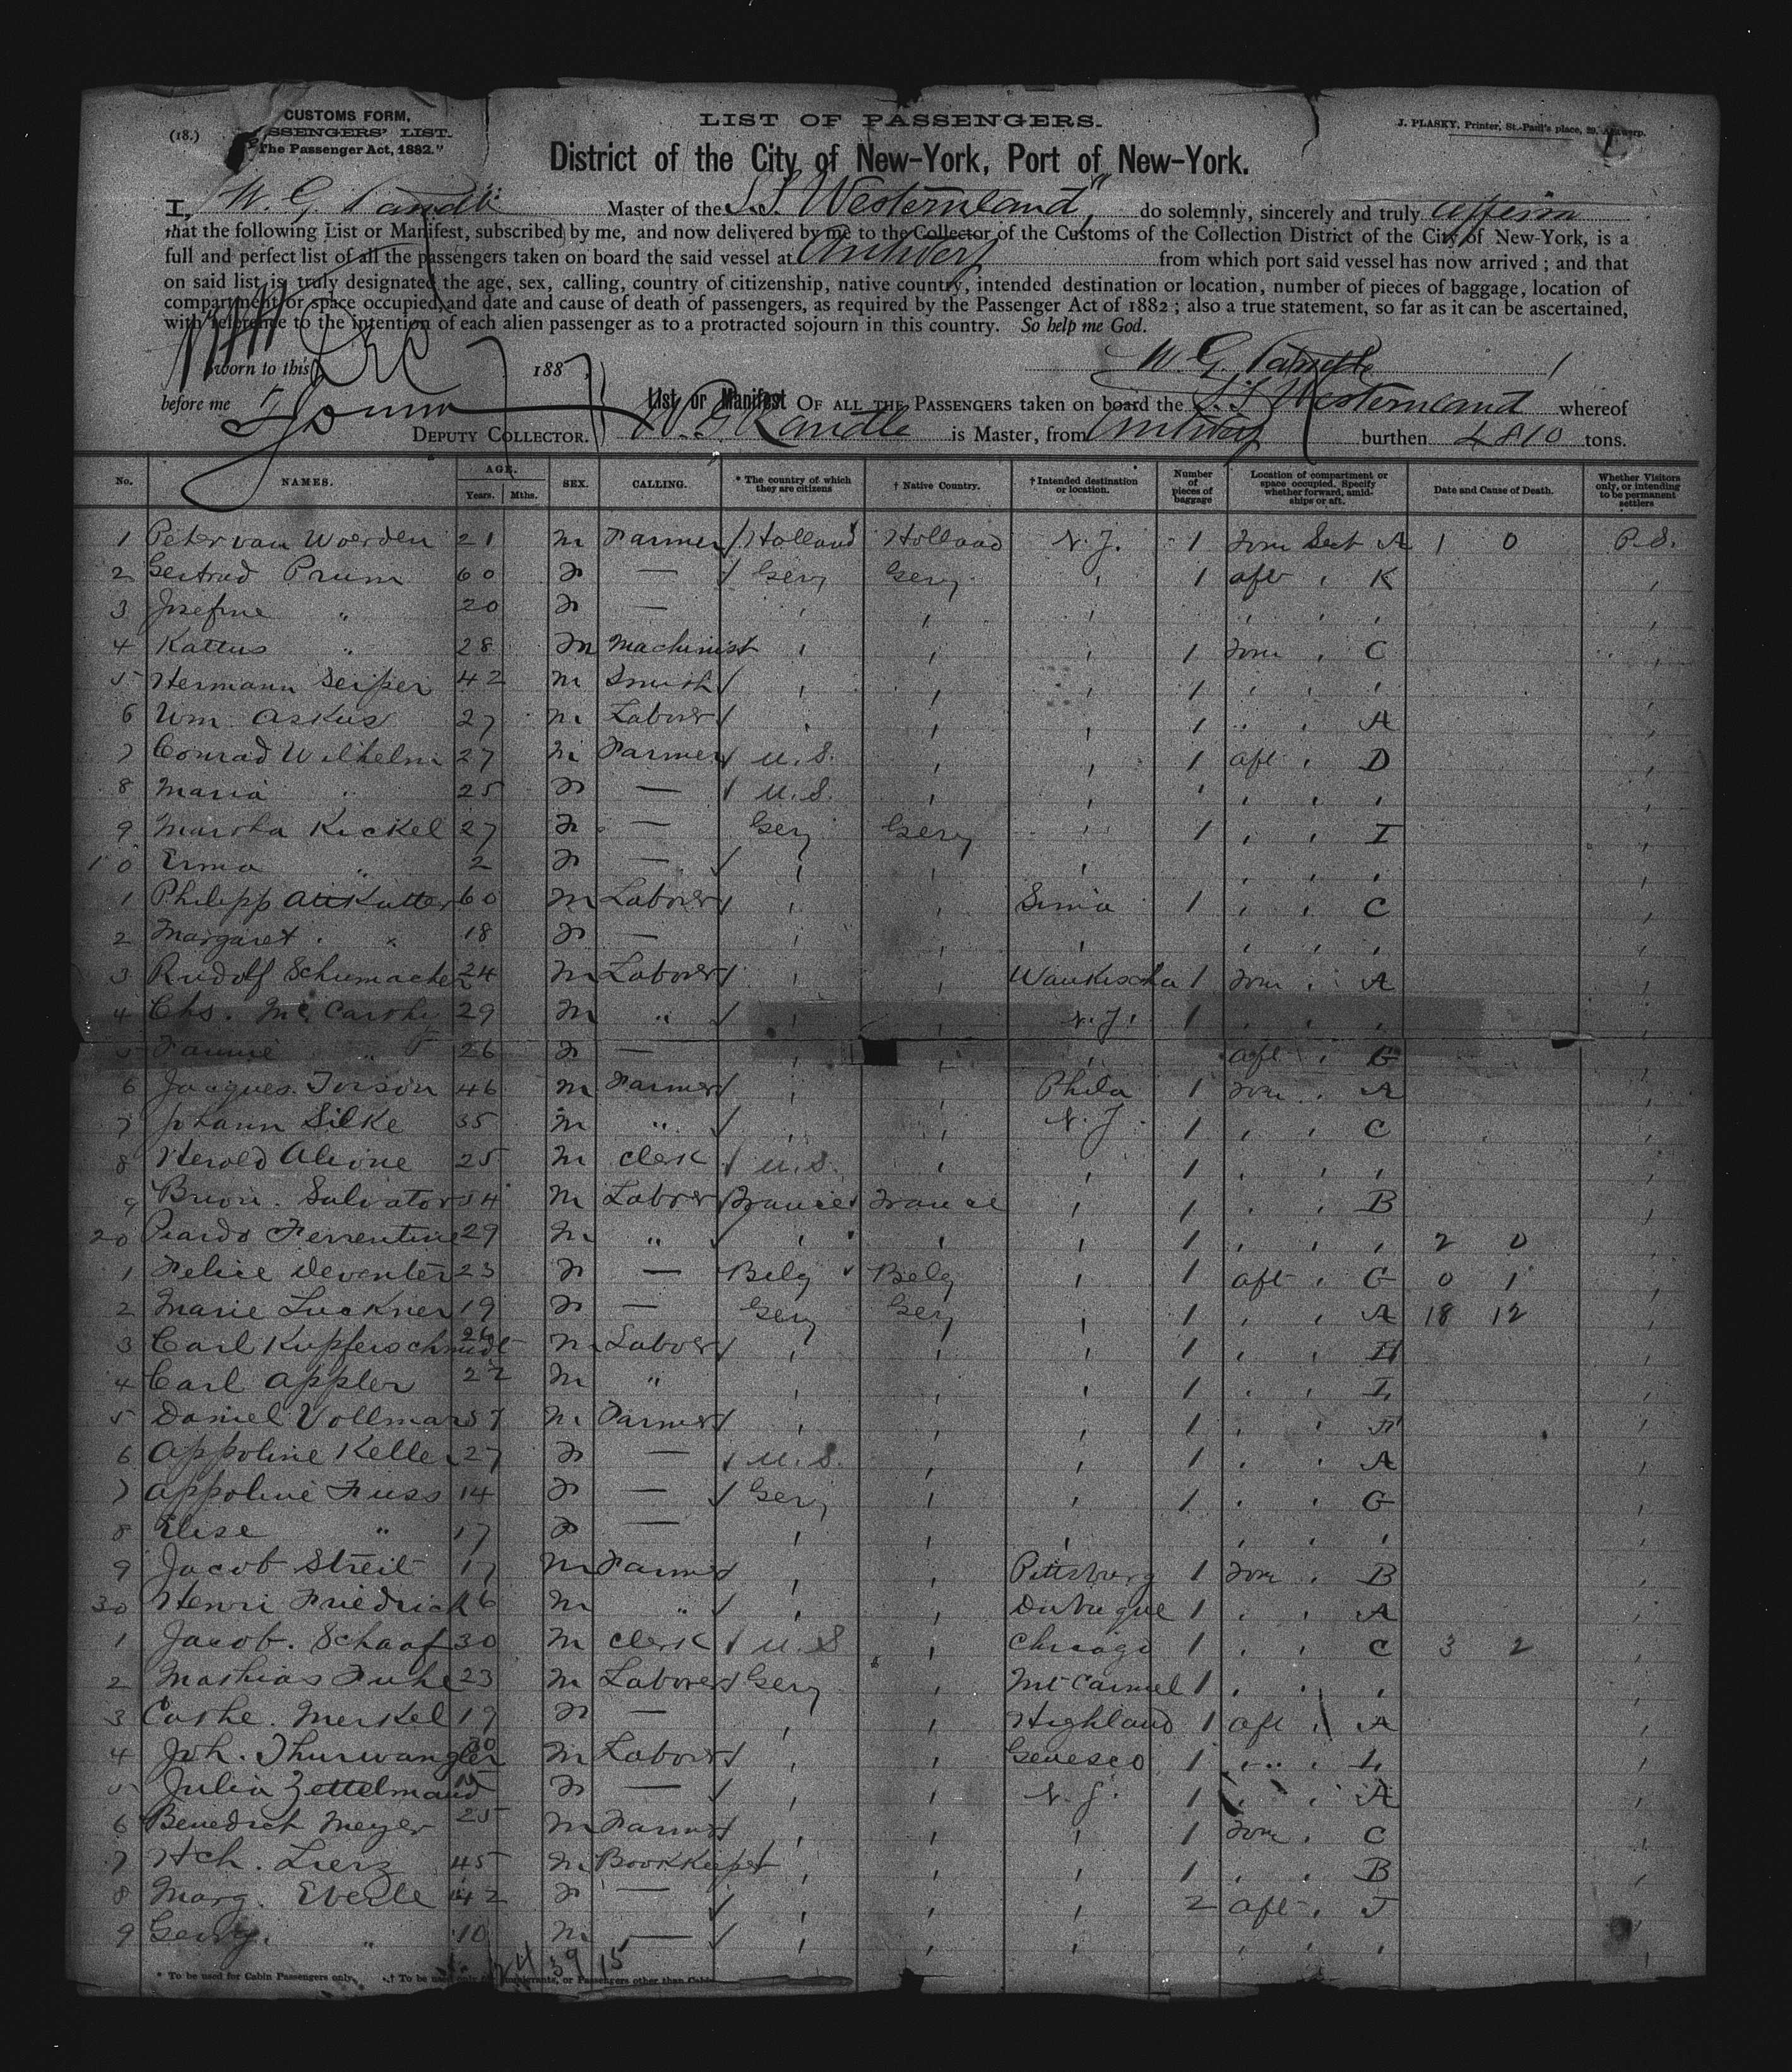 (18.)
CUSTOMS FORM,
SSENGERS' LIST.
"The Passenger Act, 1882."
LIST OF PASSENGERS.
J. PLASKY, Printer, St.-Paul's place, 29, Antwerp.
District of the City of New-York, Port of New-York.
I, W. G. Randle Master of the S.S. "Westernland", do solemnly, sincerely and truly affirm
that the following List or Manifest, subscribed by me, and now delivered by me to the Collector of the Customs of the Collection District of the City of New-York, is a
full and perfect list of all the passengers taken on board the said vessel at Antwerp from which port said vessel has now arrived ; and that
on said list is truly designated the age, sex, calling, country of citizenship, native country, intended destination or location, number of pieces of baggage, location of
compartment or space occupied, and date and cause of death of passengers, as required by the Passenger Act of 1882 ; also a true statement, so far as it can be ascertained,
with reference to the intention of each alien passenger as to a protracted sojourn in this country. So help me God.
Sworn to this Dec 7 1887
W. G. Randle
before me
DEPUTY COLLECTOR.
List or Manifest OF ALL THE PASSENGERS taken on board the S.S Westernland whereof
W. G Randle is Master, from Antwerp burthen 4810 tons.
No. NAMES. AGE. Years. Mths. SEX. CALLING. * The country of which they are citizens † Native Country. † Intended destination or location. Number of pieces of baggage Location of compartment or space occupied. Specify whether forward, amidships or aft. Date and Cause of Death. Whether Visitors only, or intending to be permanent settlers
1 Peter van Woerden 21 m Farmer Holland Holland N. J. 1 Forw Sect A 1 0 P.S.
2 Gertrud Prum 60 F — Gery Gery " 1 aft " K "
3 Josefine " 20 F — " " " " " " "
4 Kattus " 28 m Machinist " " " 1 Forw " C "
5 Hermann Seiper 42 m Smith " " " 1 " " " "
6 Wm Askus 27 m Laborer " " " 1 " " A "
7 Conrad Wilhelm 27 m Farmer U.S. " " 1 aft " D "
8 Maria " 25 F — U.S. " " " " " " "
9 Martha Kickel 27 F — Gery Gery " 1 " " I "
10 Erma " 2 F — " " " " " " "
1 Philipp 60 m Laborer " " 1 " " C "
2 Margaret " 18 F — " " " " " " "
3 Rudolf Schumacher 24 m Laborer " " Waukischa 1 Forw " A "
4 Chs. Mc Carthy 29 m " " " N.J. 1 " " " "
5 Fannie " 26 F — " " " aft " G "
6 Jacques 46 m Farmer " " Phila 1 Forw " A "
7 Johann Silke 35 m " " " N.J. 1 " " C "
8 Herold 25 m Clerk U.S. " " 1 " " " "
9 Salvator 34 m Laborer France France " 1 " " B "
20 Ferrentine 29 m " " " " 1 " " " 2 0 "
1 Felice Deventer 23 F — Belg Belg " 1 aft " G 0 1 "
2 Marie Luckner 19 F — Gery Gery " 1 " " A 18 12 "
3 Carl Kupferschmidt 26 m Laborer " " " 1 " " H "
4 Carl Appler 22 m " " " " 1 " " I "
5 Daniel Vollmar 57 m Farmer " " " 1 " " "
6 Appoline Keller 27 F — U.S. " " 1 " " A "
7 Appoline Fuss 14 F — Gery " " 1 " " G "
8 Elise " 17 F — " " " " " " "
9 Jacob Streit 17 m Farmer " " Pittsburg 1 Forw " B "
30 Henri Friedrich 16 m " " " Dubuque 1 " " A "
1 Jacob. Schaaf 30 m Clerk U.S " Chicago 1 " " C 3 2 "
2 Mathias Fuhe 23 m Laborer Gery " Mt Carmel 1 " " " "
3 Cathe. Merkel 19 F — " " Highland 1 aft " A "
4 Joh. Thurwangler 30 m Laborer " " Genesco 1 " " "
5 Julia Zettelmand F — " " N.J. 1 " " A "
6 Benedich Meyer 25 m Farmer " " " 1 Forw " C "
7 Hch. Lierz 45 m Bookkeeper " " " 1 " " B "
8 Marg. Eberle 42 F — " " " 2 aft " J "
9 Georg. " 10 m — " " " " " " "
24 39 15
* To be used for Cabin Passengers only. † To be used only for Immigrants, or Passengers other than Cabin